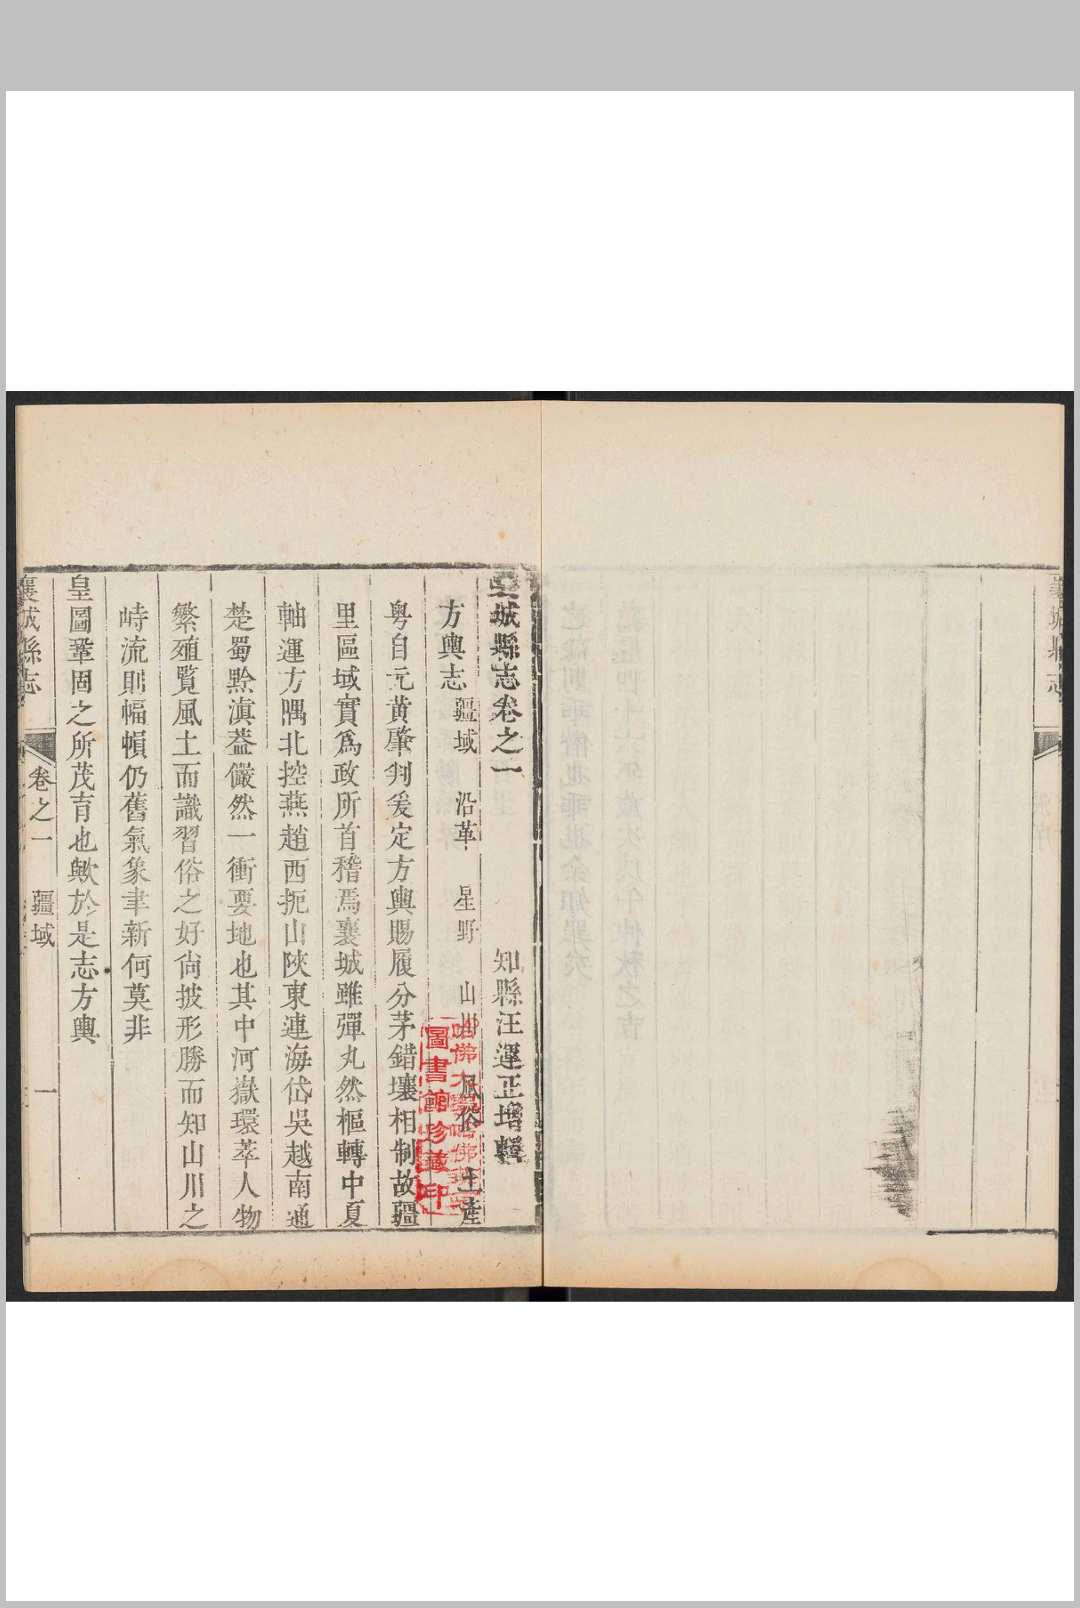 襄城縣志
襄城縣志卷之一
知縣汪運正增輯
方輿志 疆域 沿革 星野 山川 風俗 土產
粤自元黃肇判爰定方輿賜履分茅錯壤相制故疆
里區域實爲政所首稽焉襄城雖彈丸然樞轉中夏
軸運方隅北控燕趙西扼山陝東連海岱吳越南通
楚蜀黔滇葢儼然一衝要地也其中河嶽環萃人物
繁殖覽風土而識習俗之好尙披形勝而知山川之
峙流則幅幀仍舊氣象聿新何莫非
皇圖鞏固之所茂育也歟於是志方輿
襄城縣志 卷之一 疆域 一
圖書館珍藏印